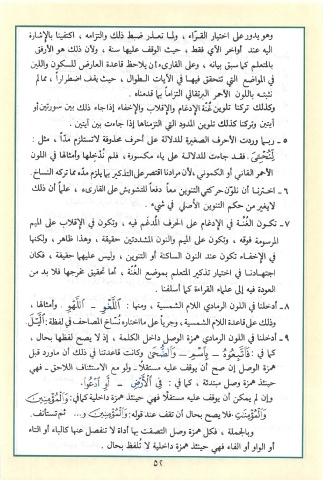 وهو يدور على اختيار القرّاء ، ولما تعذر ضبط ذلك والتزامه ، اكتفينا بالإشارة
اليه عند أواخر الآي فقط ، حيث الوقف عليها سنة ، ولأن ذلك هو الأرفق
بالمتعلم كما سبق بيانه ، وعلى القارىء إن يلاحظ قاعدة العارض للسكون واللين
في المواضع التي تتحقق فيها في الآيات الطوال ، حيث يقف اضطراراً ، مما لم
نثبته باللون الأحمر البرتقالي التزاماً بما قدمناه .
وكذلك تركنا تلوين غُنّة الإدغام والإقلاب والإخفاء إذا جاء ذلك بين سورتين أو
آيتين وتركنا كذلك تلوين المدود التي التزمناها إذا جاءت بين آيتين .
٥ - ربما وردت الأحرف الصغيرة للدلالة على أحرف محذوفة لاتستلزم مدّاً ، مثل :
لِّنُحْـِۧيَ . فقد جاءت للدلالة على ياء مكسورة ، فلم نُدخِلها وأمثالها في اللون
الأحمر القاني أو الكموني ، لأن مرادنا اقتصر على التذكير بما يلزم مدّه مما تركه النساخ.
٦ - اخترنا أن نلوّن حركتي التنوين معاً دفعاً للتشويش على القارىء ، علماً أن ذلك
لايغير من حكم التنوين الأصلي في شيء .
٧ - تكون الغُنّة في الإدغام على الحرف المُدغم فيه ، وتكون في الإقلاب على الميم
المرسومة فوقه ، وتكون على الميم والنون المشددتين حقيقة ، وهذا ظاهر ، ولكنها
في الإخفاء تكون عند النون الساكنة أو التنوين ، وليس عليهما حقيقة ، فكان
اجتهادنا في اختيار تذكير المتعلم بموضع الغُنّة ، أما تحقيق مخرجها فلا بد من
العودة فيه إلى علماء القراءة كما أسلفنا .
٨ - أدخلنا في اللون الرمادي اللام الشمسية ، ومنها : اللَّغْوِ - اللَّهْوِ . وأمثالها ،
وذلك على قاعدة اللام الشمسية ، وجرياً على مااختاره نُسّاخ المصاحف في لفظة: الَّيْلَ
٩ - أدخلنا في اللون الرمادي همزة الوصل داخل الكلمة ، إذ لا يصح لفظها بحال ،
كما في : فَاتَّبِعُوهُ - بِاسْمِ - وَالضُّحَى وكانت قاعدتنا في ذلك أن ماورد قبل
همزة الوصل إن صح أن يوقف عليه مستقلاً - ولو مع الاستئناف اللاحق - فهي
حينئذ همزة وصل مبتدئة ، كما في : فِي الْأَرْضِ - أَوِ ادْعُوا .
وإن لم يمكن أن يوقف عليه مستقلاً فهي حينئذ همزة داخلية كما في : وَالْمُؤْمِنِينَ
وَالْمُؤْمِنَٰتِ فلا يصح بحال أن تقف عند قوله : وَالْمُؤْمِنِينَ وَ... ثم تستأنف.
وبالجملة ، فكل همزة وصل التصقت بها أداة لا تنفصل عنها كالباء أو التاء
أو الواو أو الفاء فهي حينئذ همزة داخلية لا تُلفظ بحال .
٥٢